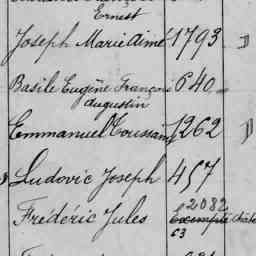 Ernest
Joseph Marie Aimé 1793
Basile Eugène François 640
Augustin
Emmanuel Toussaint 1262
Ludovic Joseph 457
2082
Frédéric Jules Exempté
63